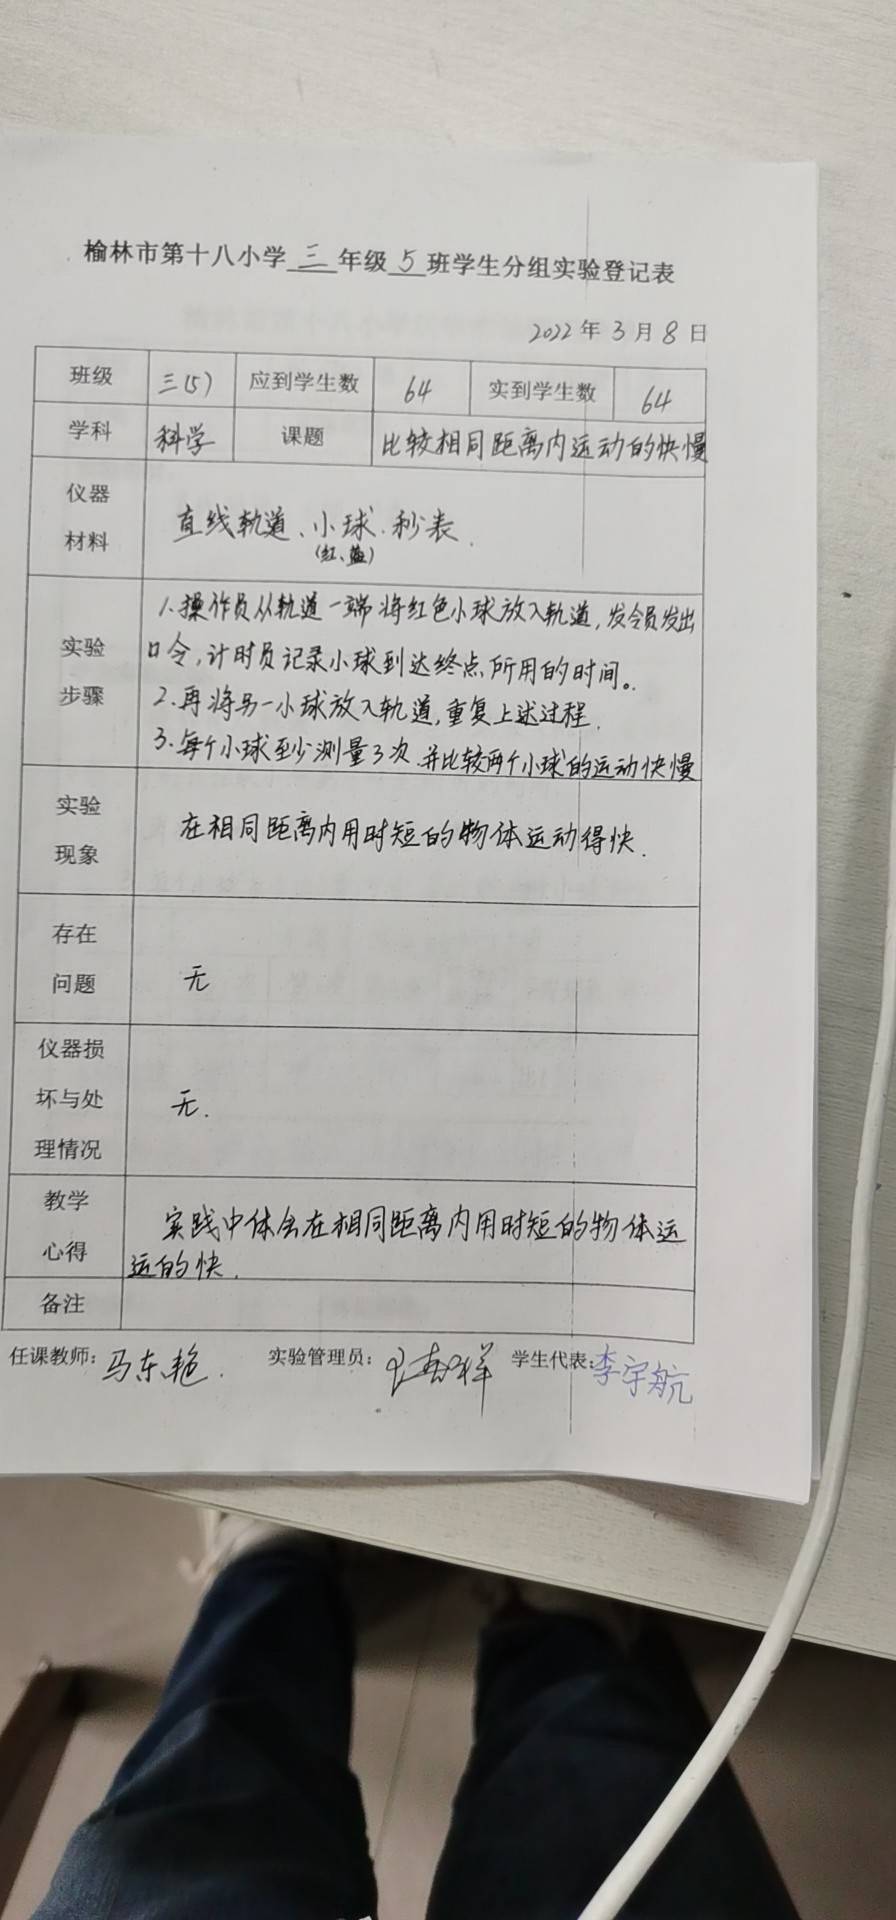 榆林市第十八小学三年级5班学生分组实验登记表
2022年3月8日
班级 三(5) 应到学生数 64 实到学生数 64
学科 科学 课题 比较相同距离内运动的快慢
仪器
材料
直线轨道、小球.秒表.
(红、蓝)
实验
步骤
1.操作员从轨道一端将红色小球放入轨道,发令员发出
口令,计时员记录小球到达终点所用的时间。
2.再将另一小球放入轨道,重复上述过程.
3.每个小球至少测量3次.并比较两个小球的运动快慢
实验
现象
在相同距离内用时短的物体运动得快.
存在
问题
无
仪器损
坏与处
理情况
无.
教学
心得
实践中体会在相同距离内用时短的物体运
运的快.
备注
任课教师:马东艳. 实验管理员: 学生代表:李宇航